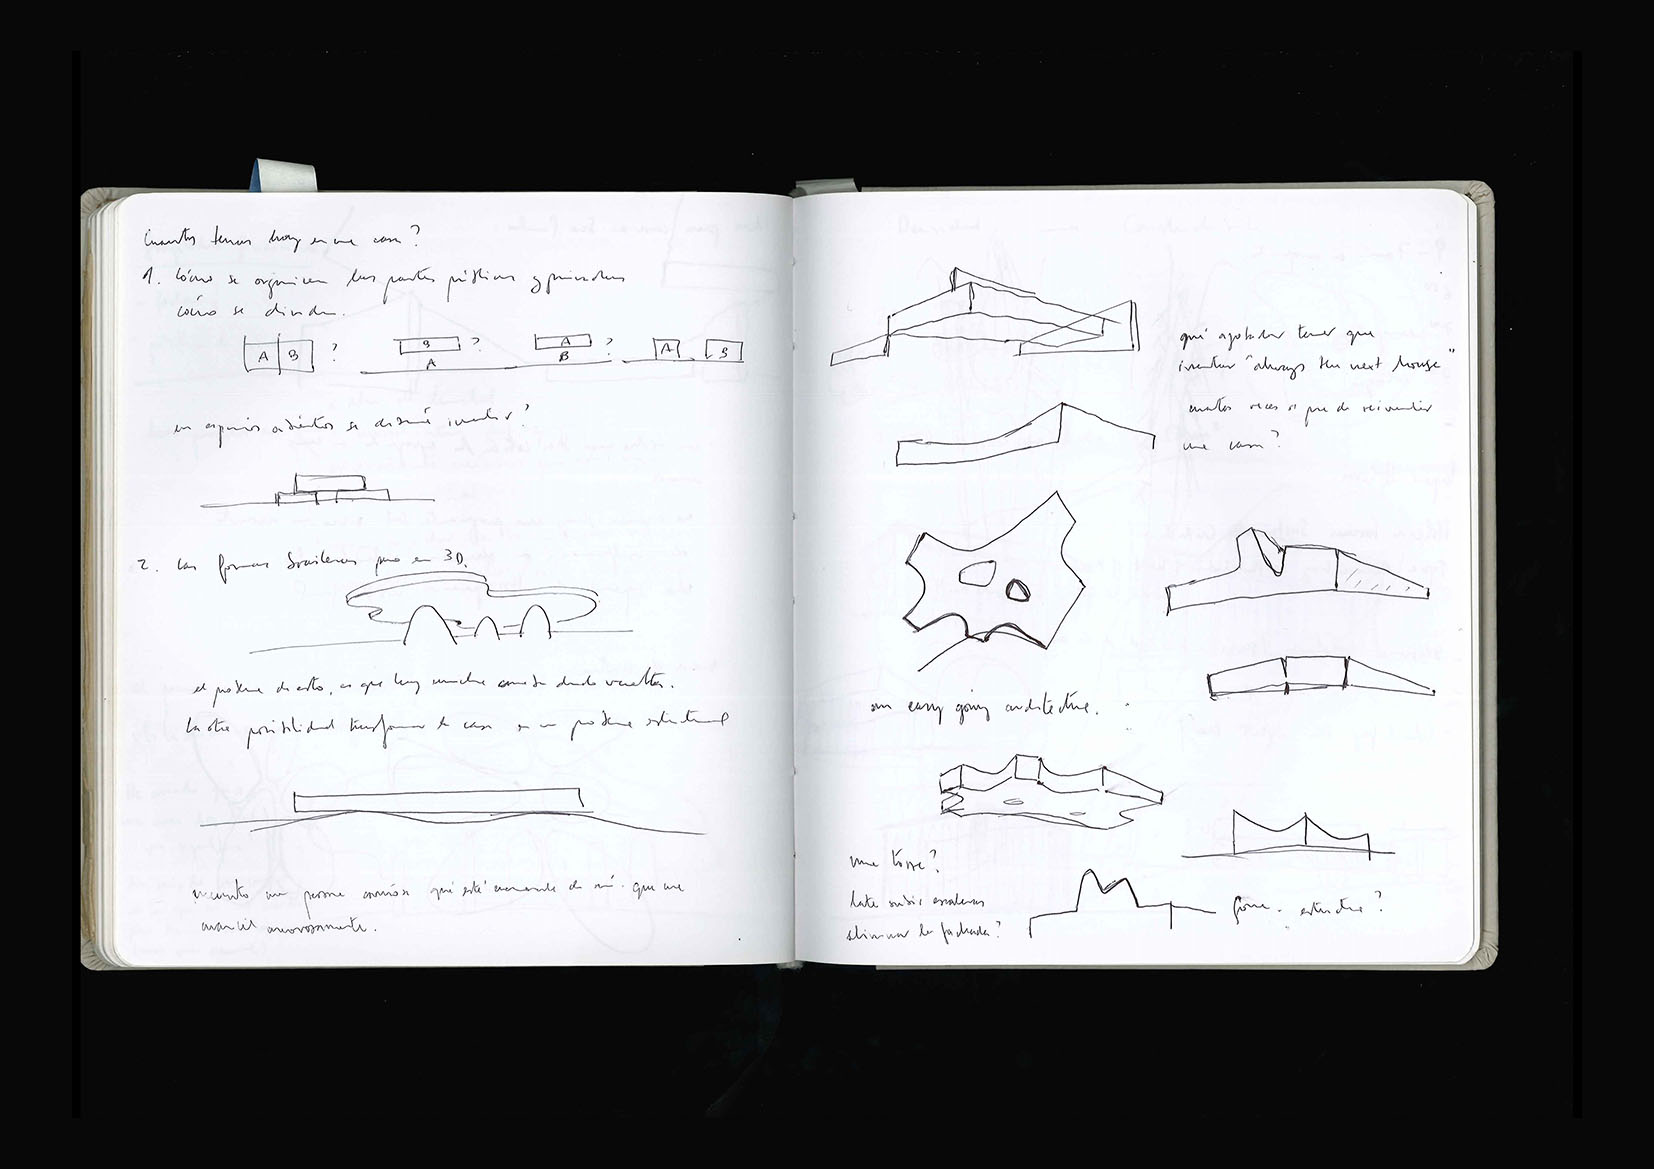 Cuantos temas hay en una casa?
1. Cómo se organizan las partes públicas y privadas
cómo se dividen.
A B ? B ? A ? A B
A B
en espacios se inventar?
2. Las formas brasileras pero en 3D.
el problema de esto, es que hay dando vueltas.
La otra posibilidad transformar la casa en un problema estructural
que esté enamorada de mí. que me
amorosamente.
qué agotador tener que
inventar "always the next house"
cuantas veces se puede reinventar
una casa?
an easy going architecture.
una torre?
subir escaleras
eliminar la fachada?
forma. estructura?